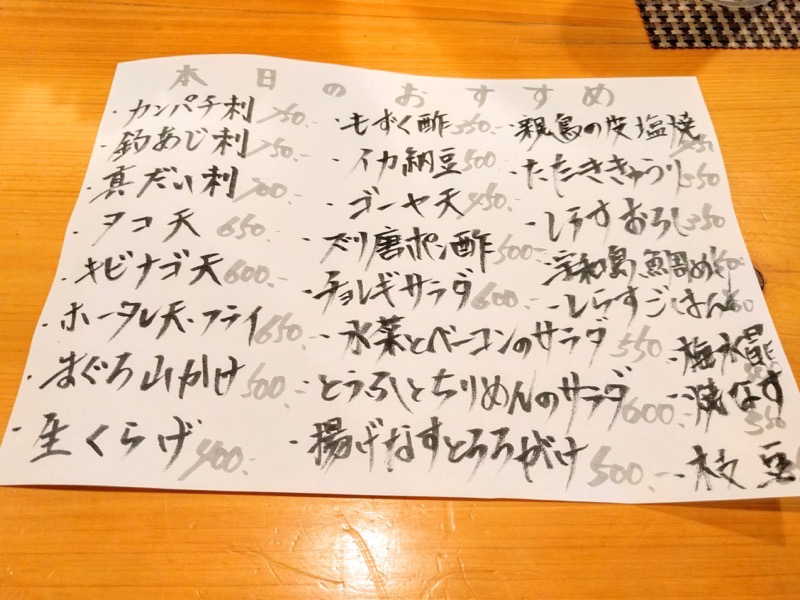 本日のおすすめ
・カンパチ刺 750.-
・釣あじ刺 750.-
・真だい刺 700.-
・タコ天 650.-
・キビナゴ天 600.-
・ホータレ天・フライ 650.-
・まぐろ山かけ 500.-
・生くらげ 400.-
・もずく酢 350.-
・イカ納豆 500.-
・ゴーヤ天 450.-
・ズリ唐ポン酢 500.-
・チョレギサラダ 600.-
・水菜とベーコンのサラダ 550
・とうふとちりめんのサラダ 600.-
・揚げなすとろろがけ 500.-
・親鳥の皮塩焼
・たたききゅうり 350
・しらすおろし 350
・宇和島鯛めし
・しらすごはん
・梅水晶
・焼なす 350
・枝豆